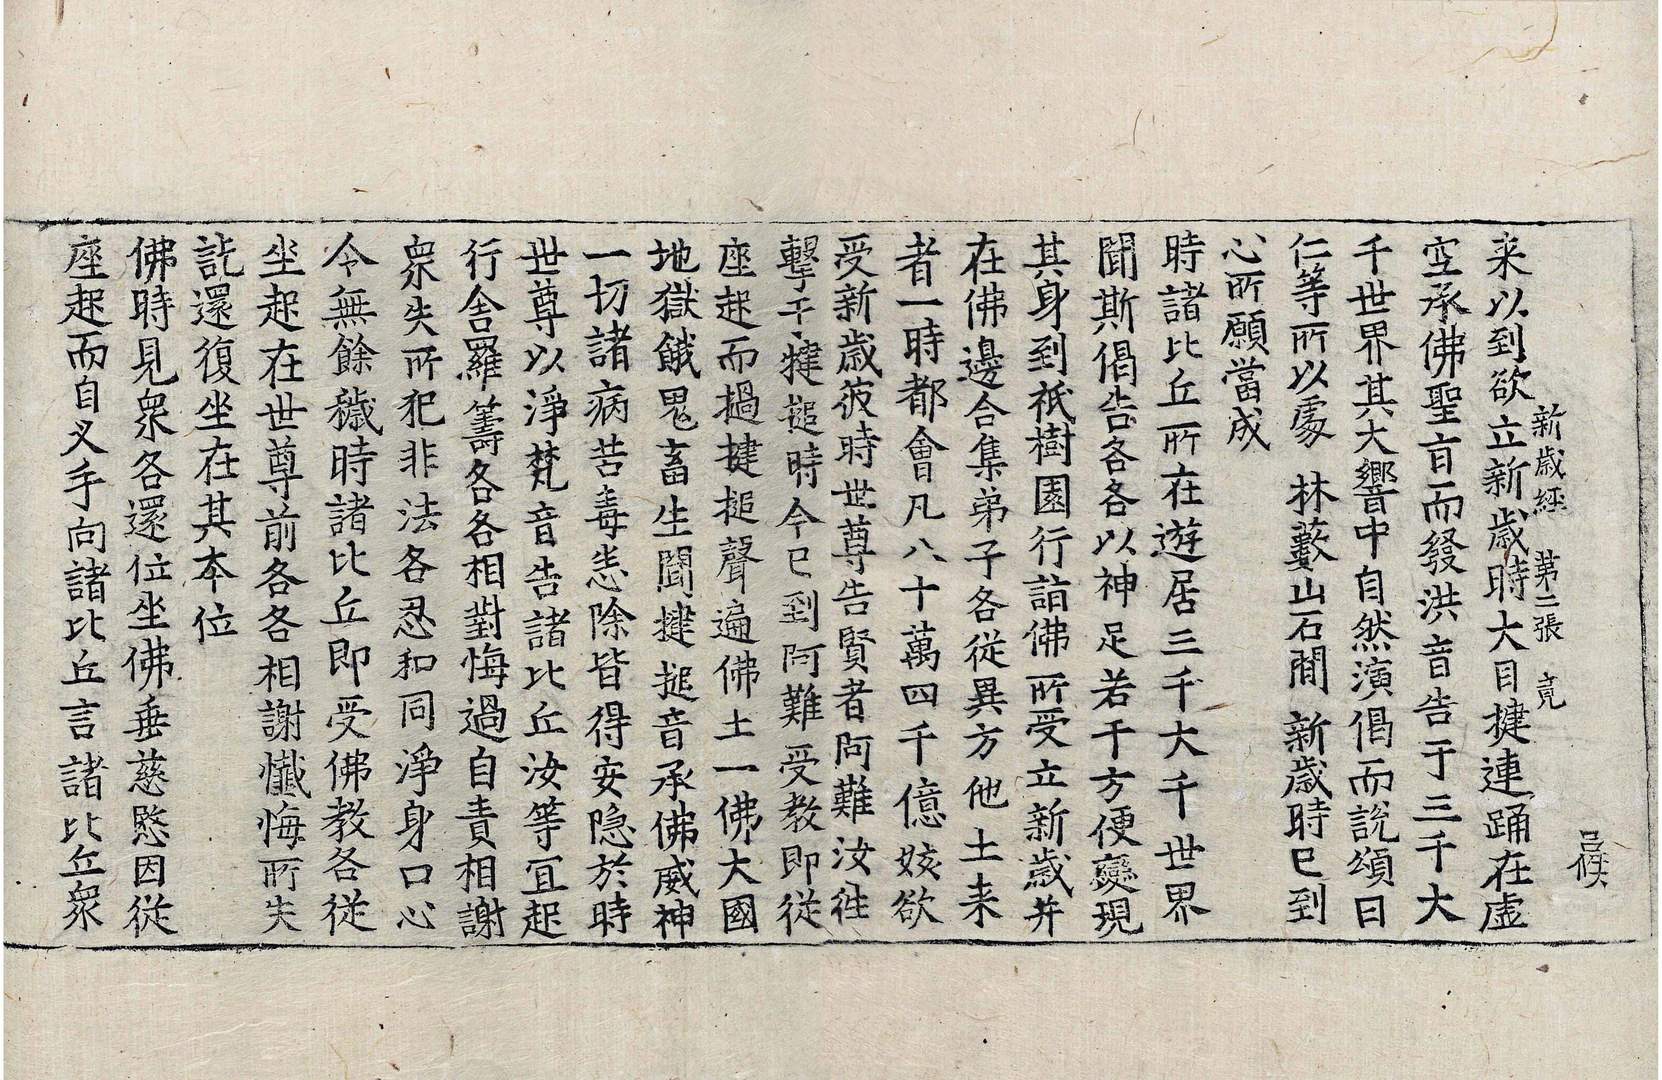 新歲經 第二張 竟
呂侯
来以到欲立新歲時大目揵連踊在虛
空承佛聖旨而發洪音告于三千大
千世界其大響中自然演偈而說頌曰
仁等所以處 林藪山石間 新歲時已到
心所願當成
時諸比丘所在遊居三千大千世界
聞斯偈告各各以神足若干方便變現
其身到祇樹園行詣佛所受立新歲并
在佛邊合集弟子各從異方他土来
者一時都會凡八十萬四千億姟欲
受新歲彼時世尊告賢者阿難汝往
擊于揵搥時今已到阿難受教即從
座起而撾揵搥聲遍佛土一佛大國
地獄餓鬼畜生聞揵搥音承佛威神
一切諸病苦毒恙除皆得安隐於時
世尊以淨梵音告諸比丘汝等宜起
行舍羅籌各各相對悔過自責相謝
衆失所犯非法各忍和同淨身口心
令無餘穢時諸比丘即受佛教各從
坐起在世尊前各各相謝懺悔所失
訖還復坐在其本位
佛時見衆各還位坐佛垂慈愍因從
座起而自叉手向諸比丘言諸比丘衆